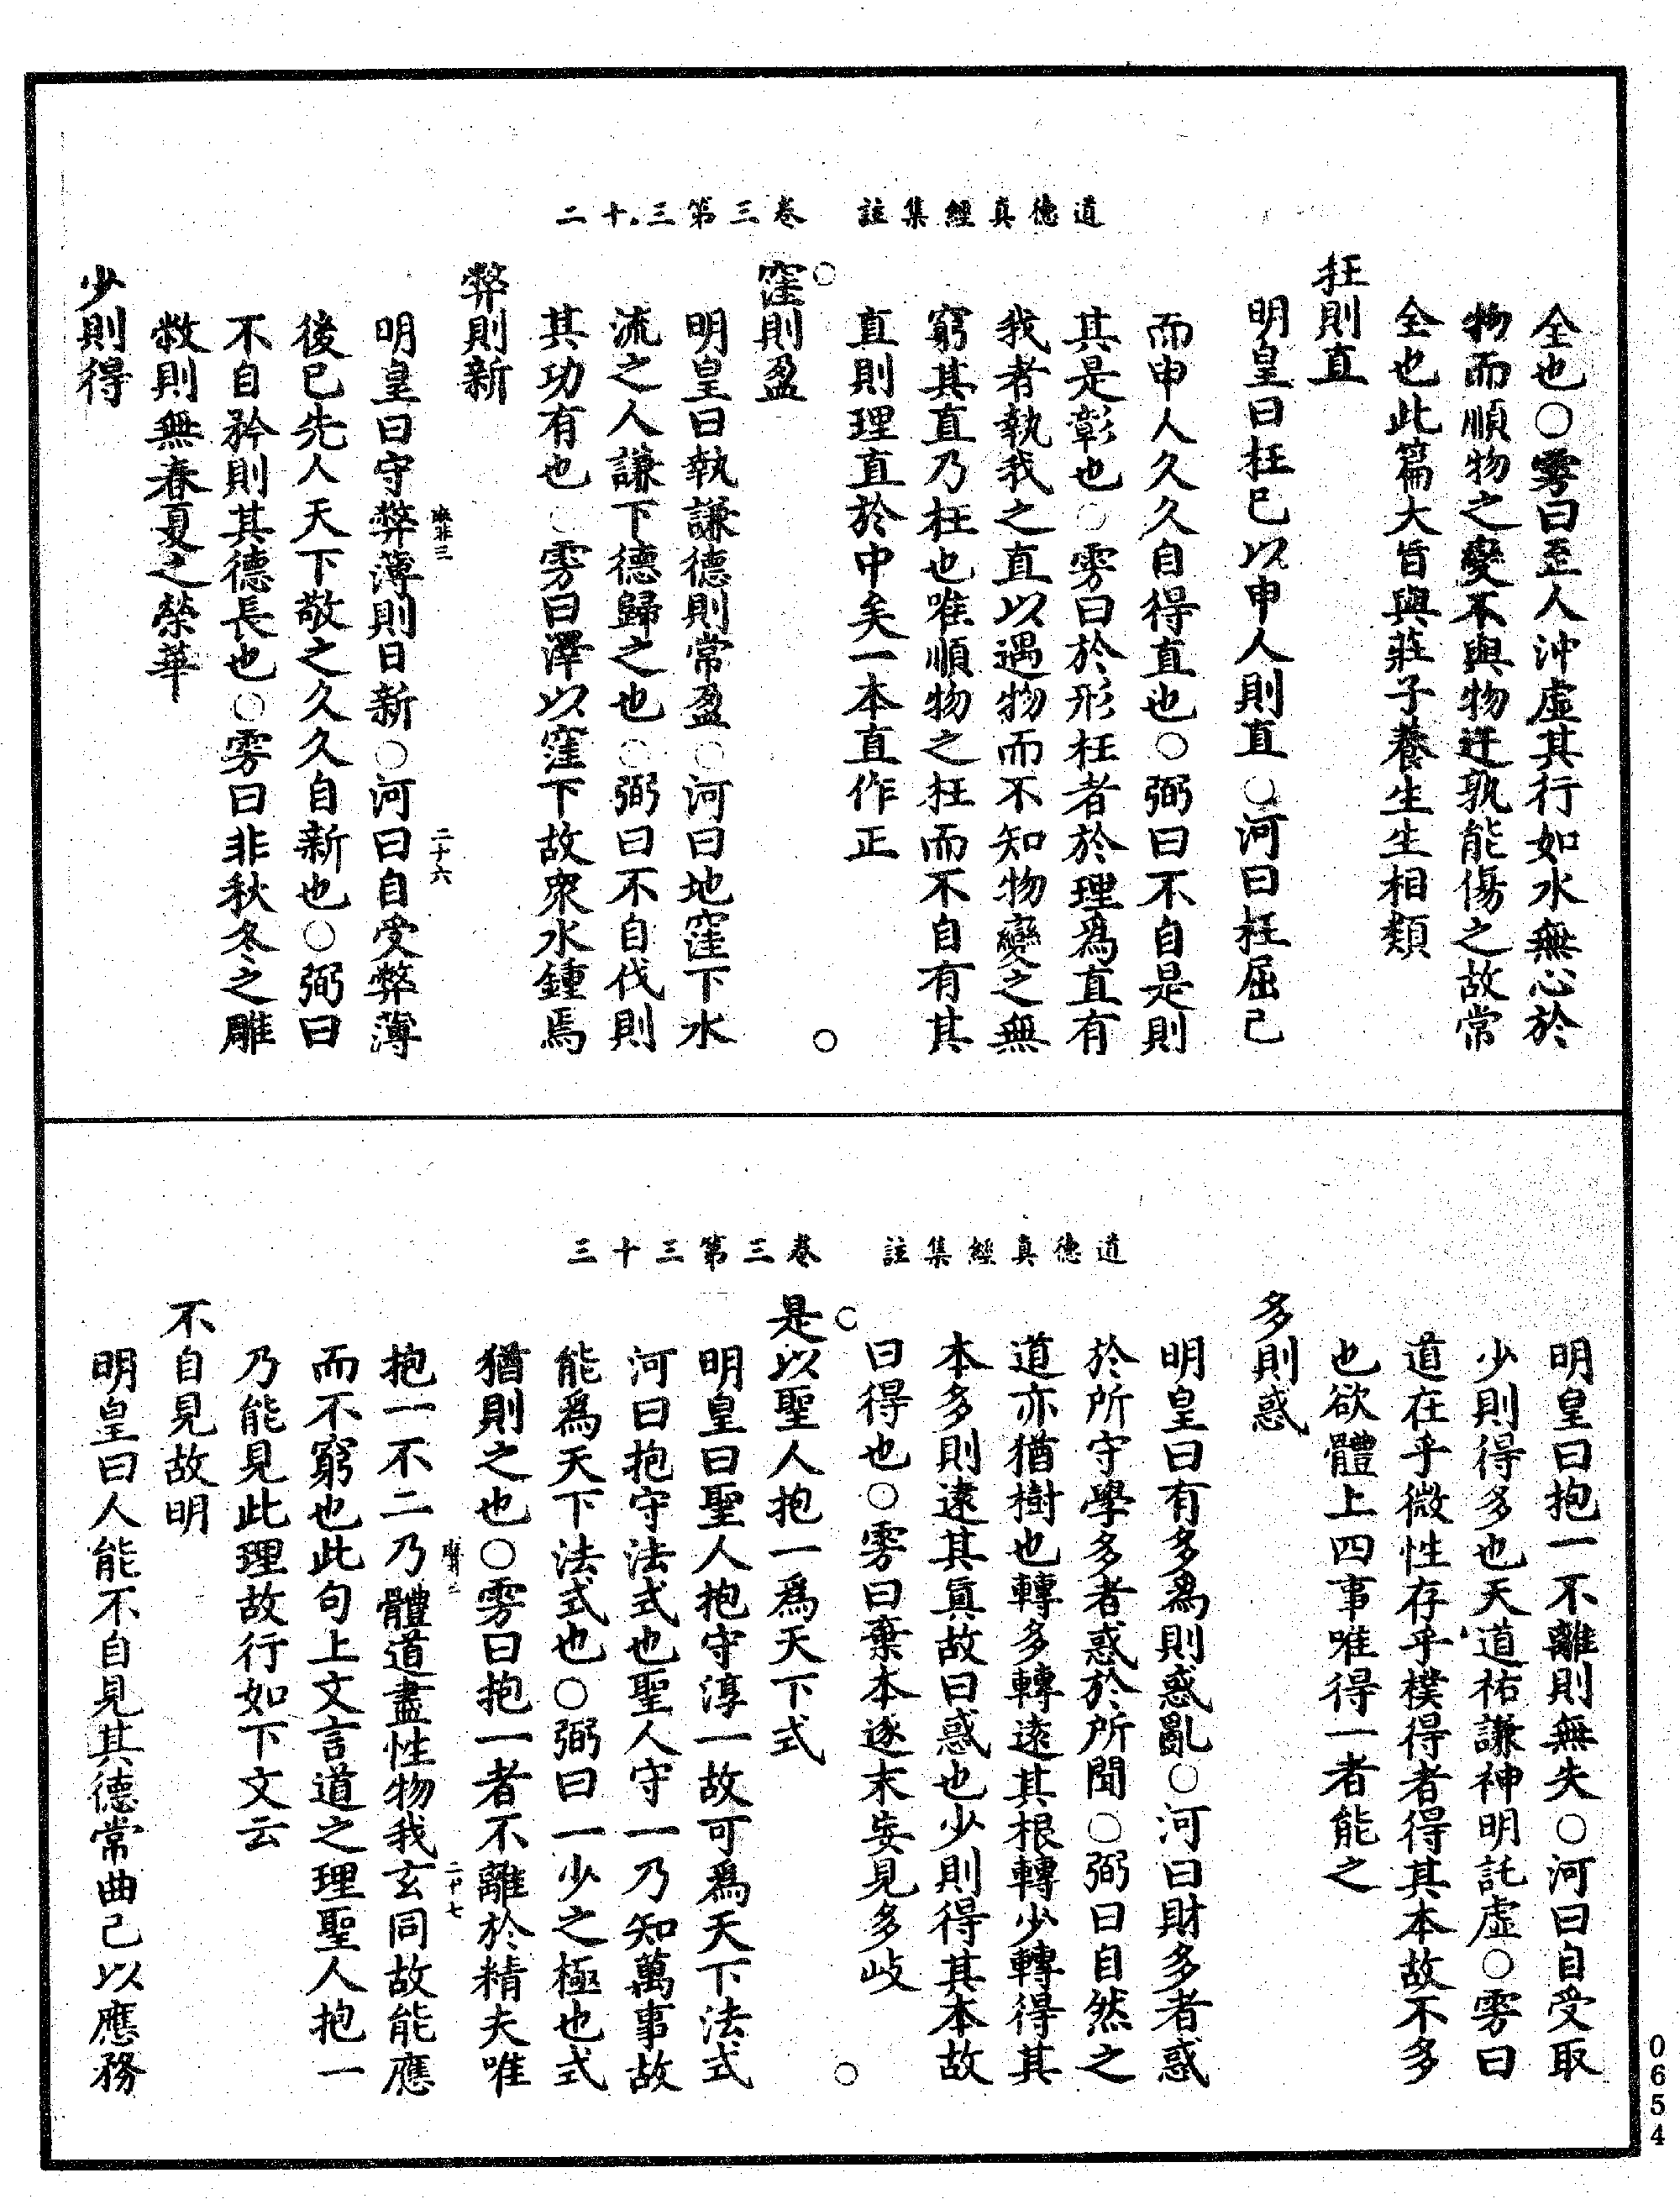 道德真經集註　卷三第三十二
全也○雱曰至人沖虛其行如水無心於
物而順物之變不與物迕孰能傷之故常
全也此篇大旨與莊子養生生相類
枉則直
明皇曰枉己以申人則直○河曰枉屈己
而申人久久自得直也○弼曰不自是則
其是彰也○雱曰於形枉者於理爲直有
我者執我之直以遇物而不知物變之無
窮其直乃枉也唯順物之枉而不自有其
直則理直於中矣一本直作正
○
○
窪則盈
明皇曰執謙德則常盈○河曰地窪下水
流之人謙下德歸之也○弼曰不自伐則
其功有也○雱曰澤以窪下故衆水鍾焉
弊則新
二十六
明皇曰守弊薄則日新○河曰自受弊薄
後己先人天下敬之久久自新也○弼曰
不自矜則其德長也○雱曰非秋冬之雕
敝則無春夏之榮華
少則得
道德真經集註　卷三第三十三
明皇曰抱一不離則無失○河曰自受取
少則得多也天道祐謙神明託虛○雱曰
道在乎微性存乎樸得者得其本故不多
也欲體上四事唯得一者能之
多則惑
明皇曰有多爲則惑亂○河曰財多者惑
於所守學多者惑於所聞○弼曰自然之
道亦猶樹也轉多轉遠其根轉少轉得其
本多則遠其真故曰惑也少則得其本故
曰得也○雱曰棄本逐末妄見多歧
○
○
是以聖人抱一爲天下式
明皇曰聖人抱守淳一故可爲天下法式
河曰抱守法式也聖人守一乃知萬事故
能爲天下法式也○弼曰一少之極也式
猶則之也○雱曰抱一者不離於精夫唯
二十七
抱一不二乃體道盡性物我玄同故能應
而不窮也此句上文言道之理聖人抱一
乃能見此理故行如下文云
不自見故明
明皇曰人能不自見其德常曲己以應務
0654